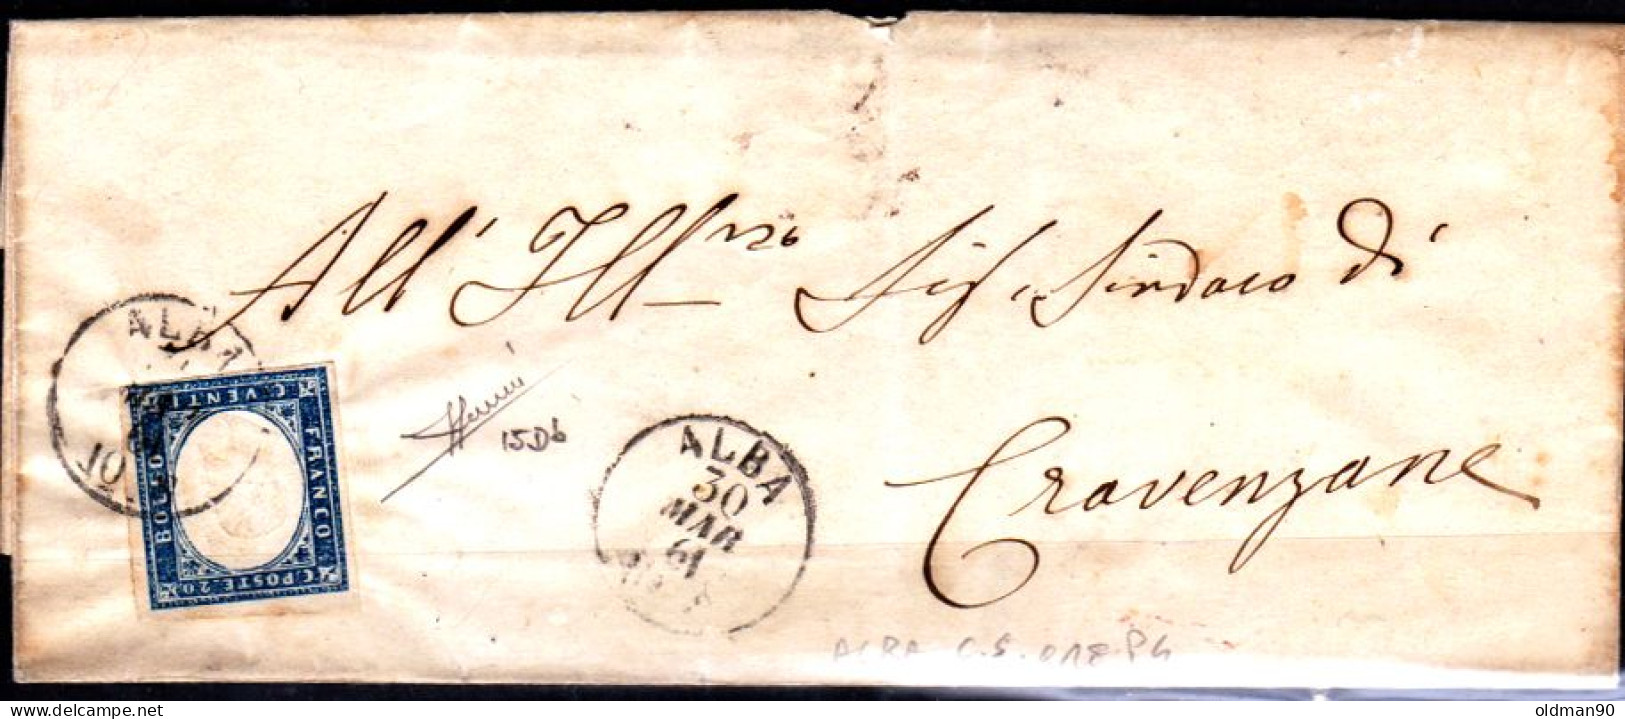 All' Ill.mo Sig. Sindaco di
Cravenzane
ALBA
10
ALBA
30
MAR
61
C. VENTI
FRANCO
BOLLO
C POSTE 20
15Db
ALBA C.S.
www.delcampe.net
oldman90